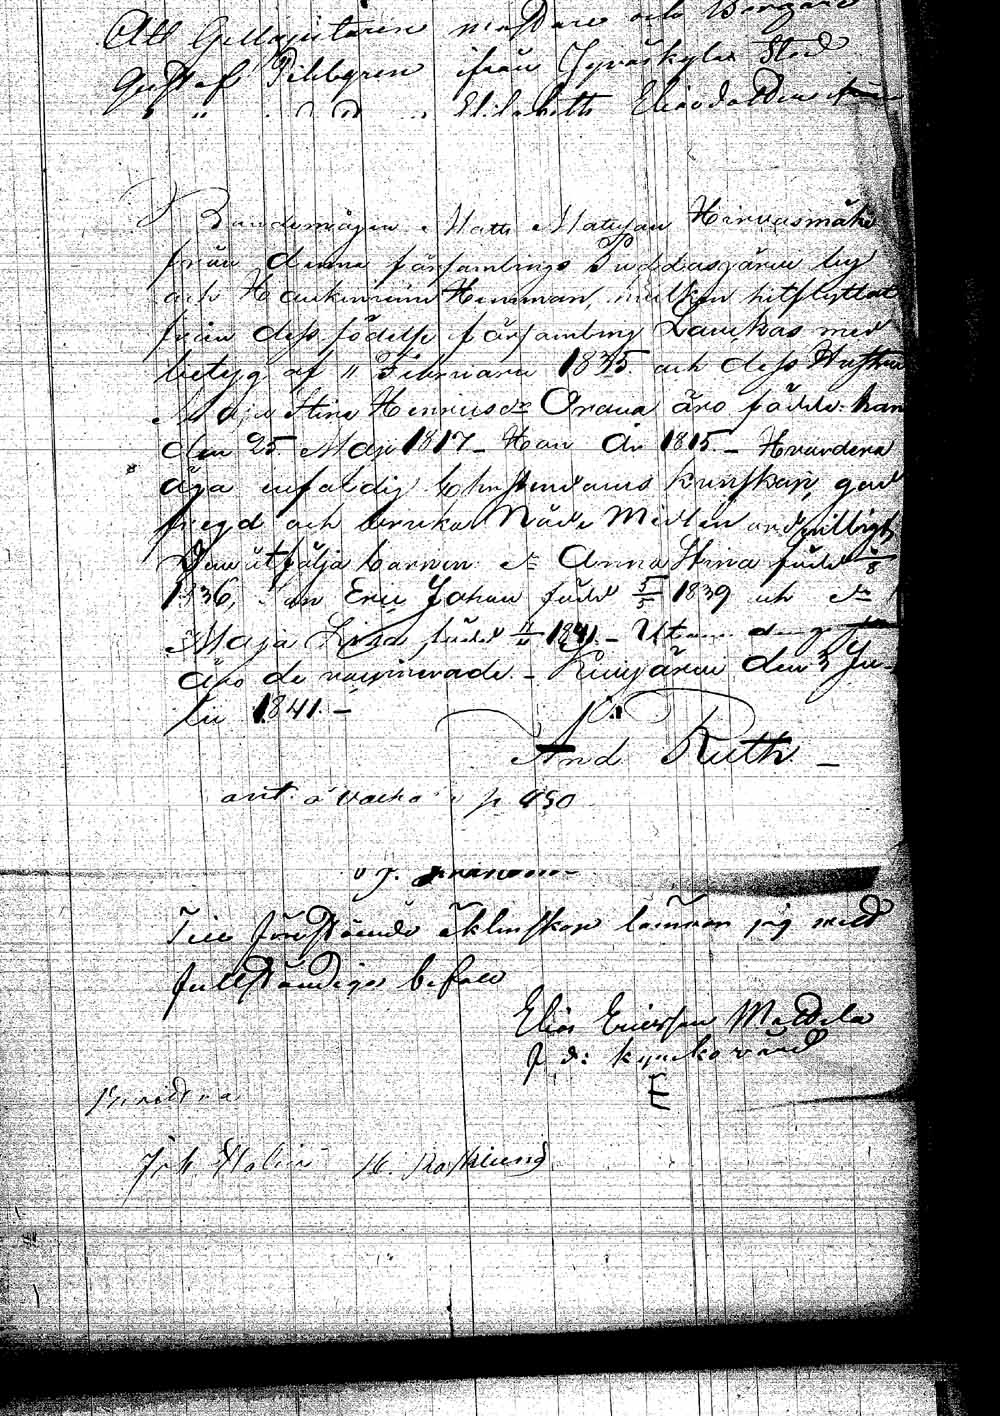 Att Gellgjutaren mästare och Borgare
Gustaf Pihlgren ifrån Jyväskylä Stad
" " Elisabeth Eliædotter ifrån
Bondemågen Matts Matsson Hirvasmäki
från denna församlings Puddasjärvi by
och Haukiniemi Hemman, hvilken hitflyttat
från dess födelse församling Laukas med
betyg af 11 Februarii 1835 och dess Hustru
Maja Stina Henricsdr Orava äro födde: han
den 25 Maji 1817 - Hon år 1815. - Hvardera
äga enfaldig Christendoms kunskap, god
fregd och bruka Nåde Medlen ordentligt
Dem åtfölja barnen: dr Anna Stina född /8
1836, son Eric Johan född 5/5 1839 och dr
Maja Lisa, född 11/11 1841. - Utom
äro de vaccinerade. - Kivijärvi den 3 Ju-
lii 1841. -
And Ruth. -
ant. p 450
Till förestående äktenskap lemnar jag mitt
fullständiga bifall
Elias Ericsson Mattila
f. d: kyrkovärd
E
Bevittna
Joh. Holm